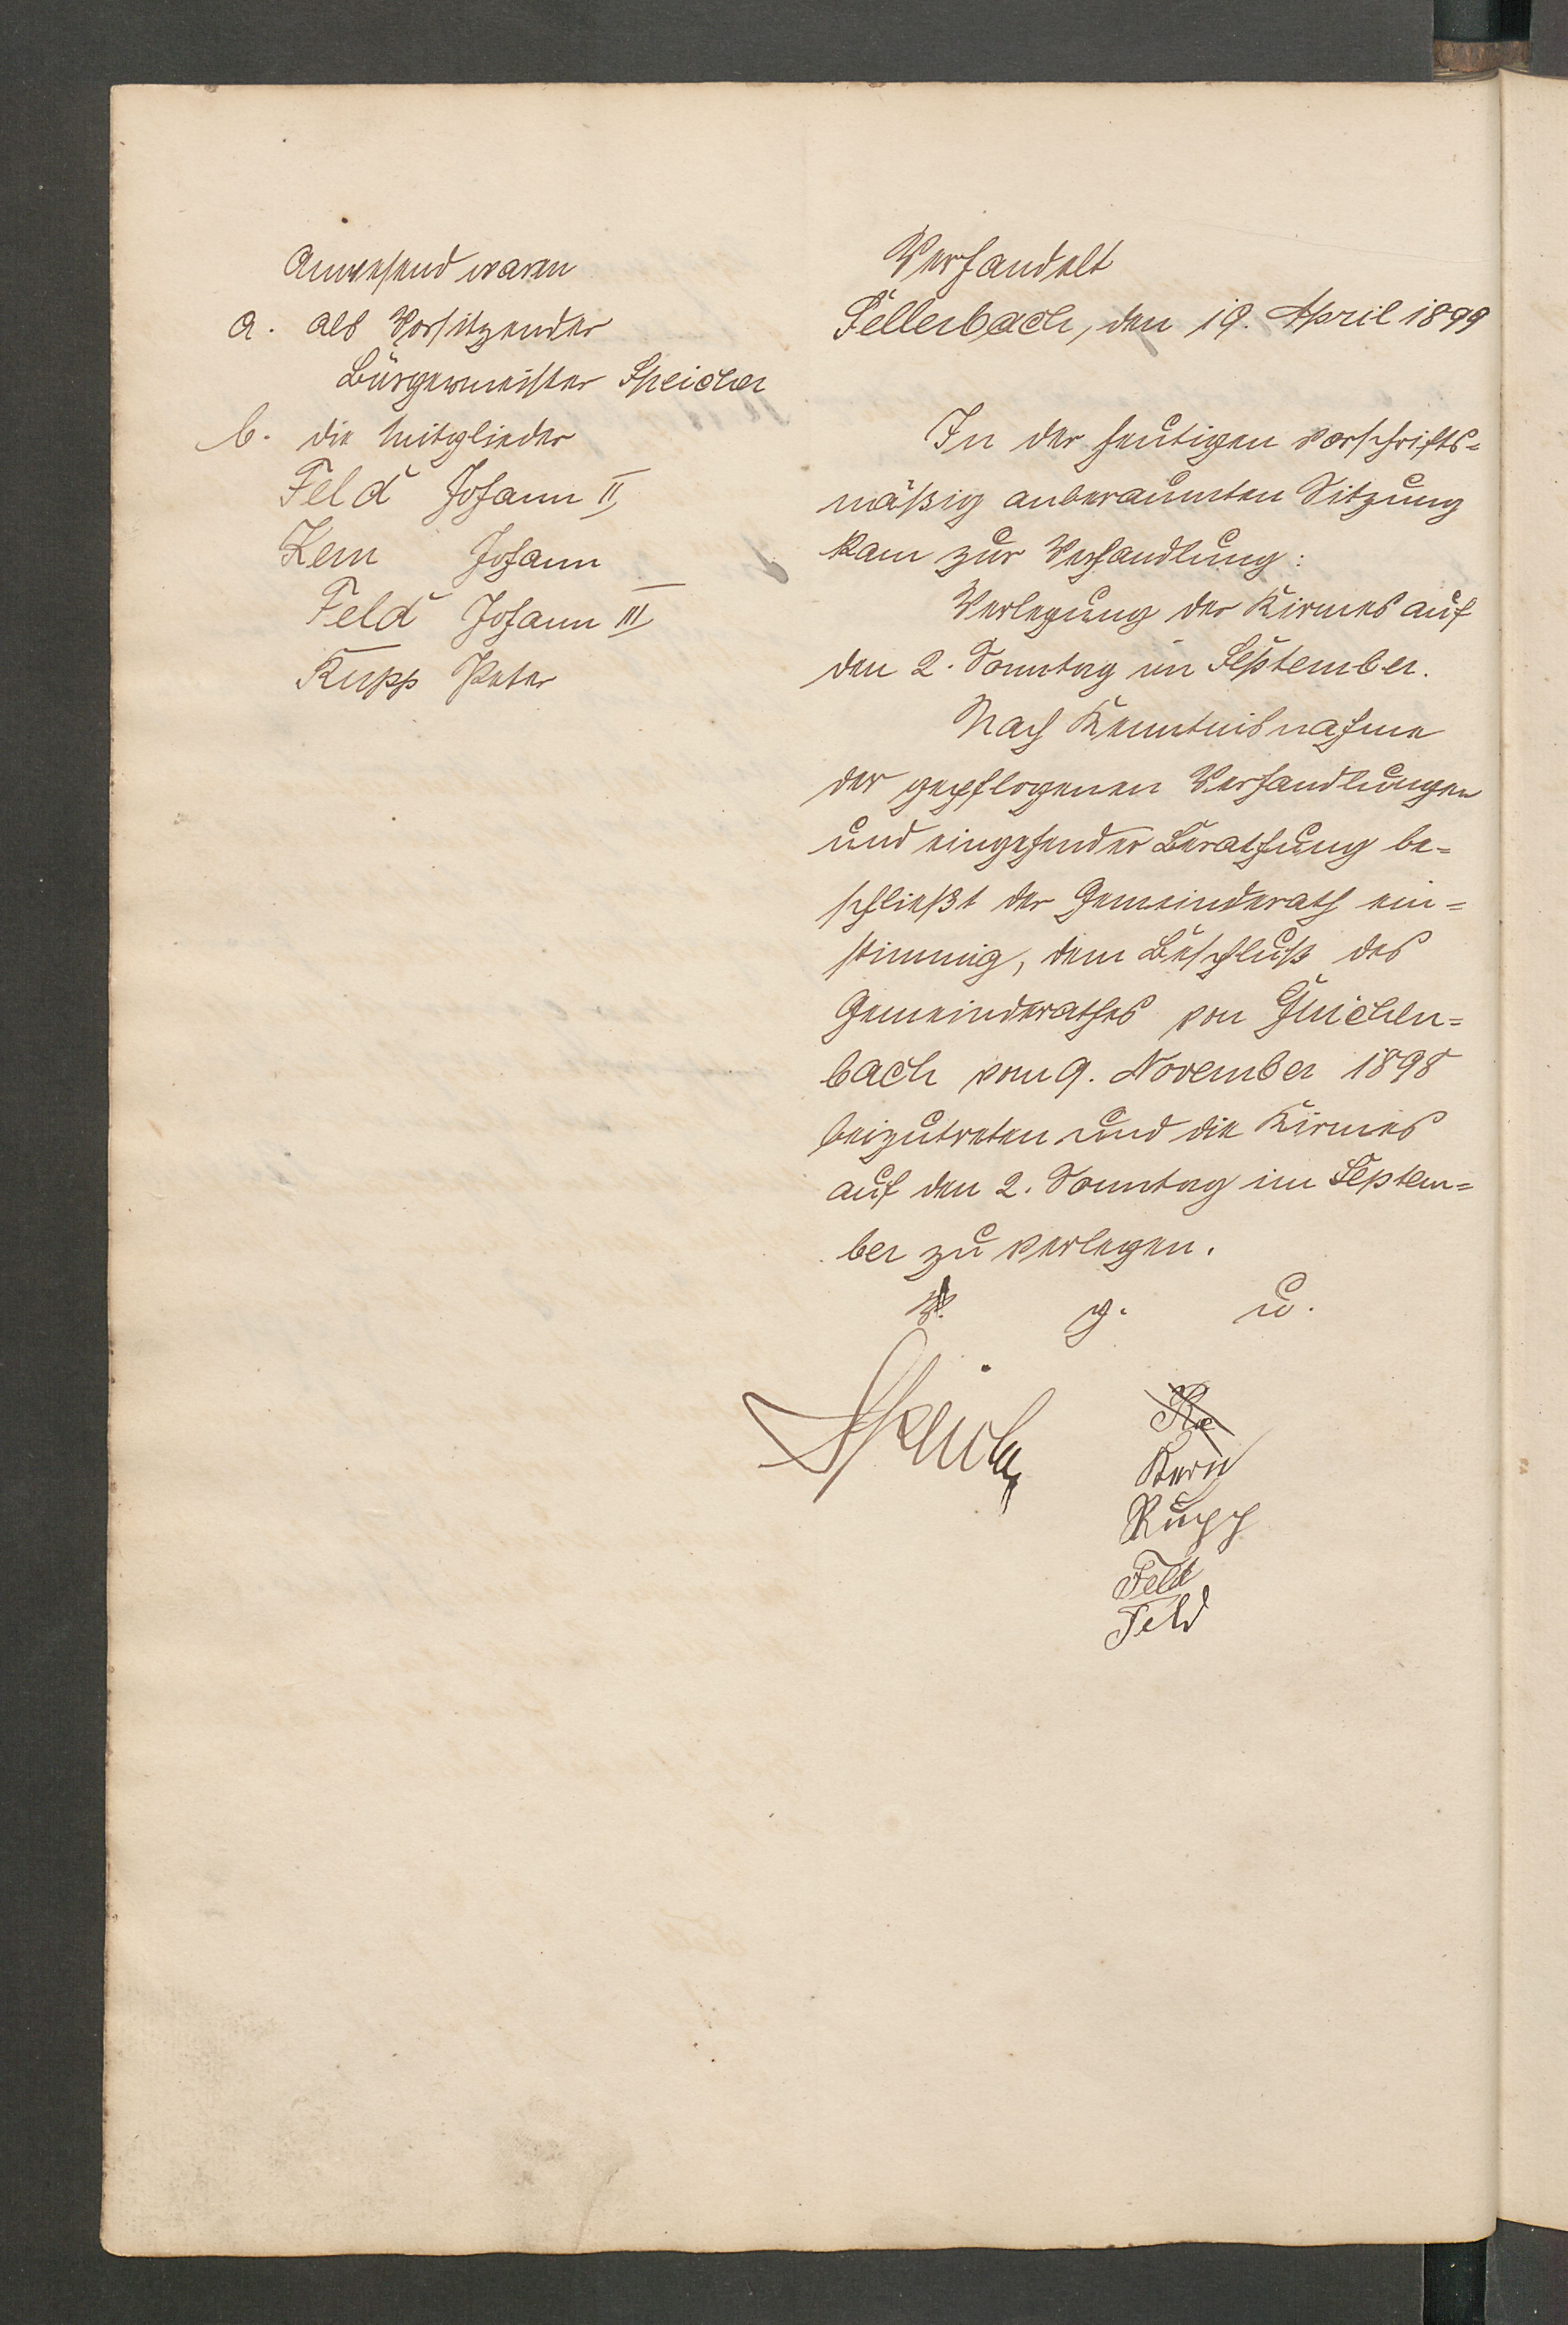 Anwesend waren
a. als Vorsitzender
Bürgermeister Speicher
b. die Mitglieder
Feld Johann II
Kern Johann
Feld Johann III
Rupp Peter
Verhandelt
Sellerbach, den 19. April 1899
In der heutigen vorschrifts=
mäßig anberaumten Sitzung
kam zur Verhandlung:
Verlegung der Kirmes auf
den 2. Sonntag im September.
Nach Kenntnisnahme
der gepflogenen Verhandlungen
und eingehender Berathung be=
schließt der Gemeinderath ein=
stimmig, dem Beschluß des
Gemeinderathes von Güichen=
bach vom 9. November 1898
beizutreten und die Kirmes
auf den 2. Sonntag im Septem=
ber zu verlegen.
v. g. u.
Speicher
Kern
Rupp
Feld
Feld